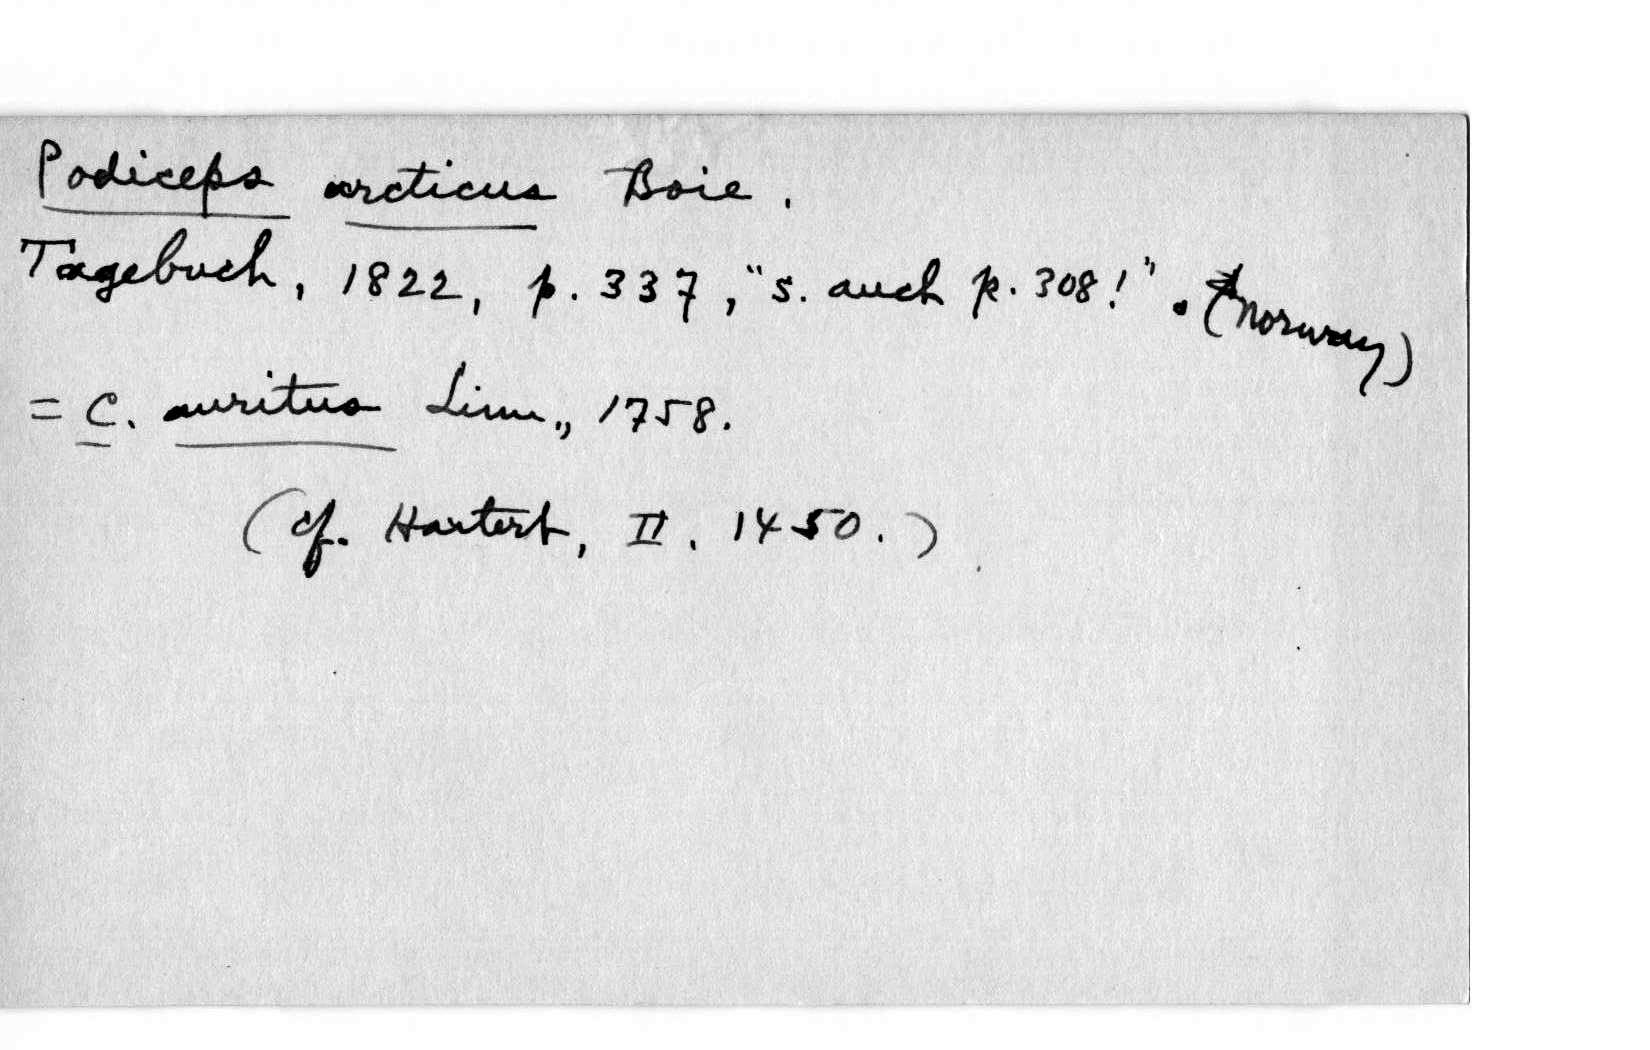 Podiceps arcticus Boie.
Tagebuch, 1822, p. 337, "s. auch p. 308!". (Norway)
= C. auritus Linn., 1758.
(cf. Hartert, II. 1450.)